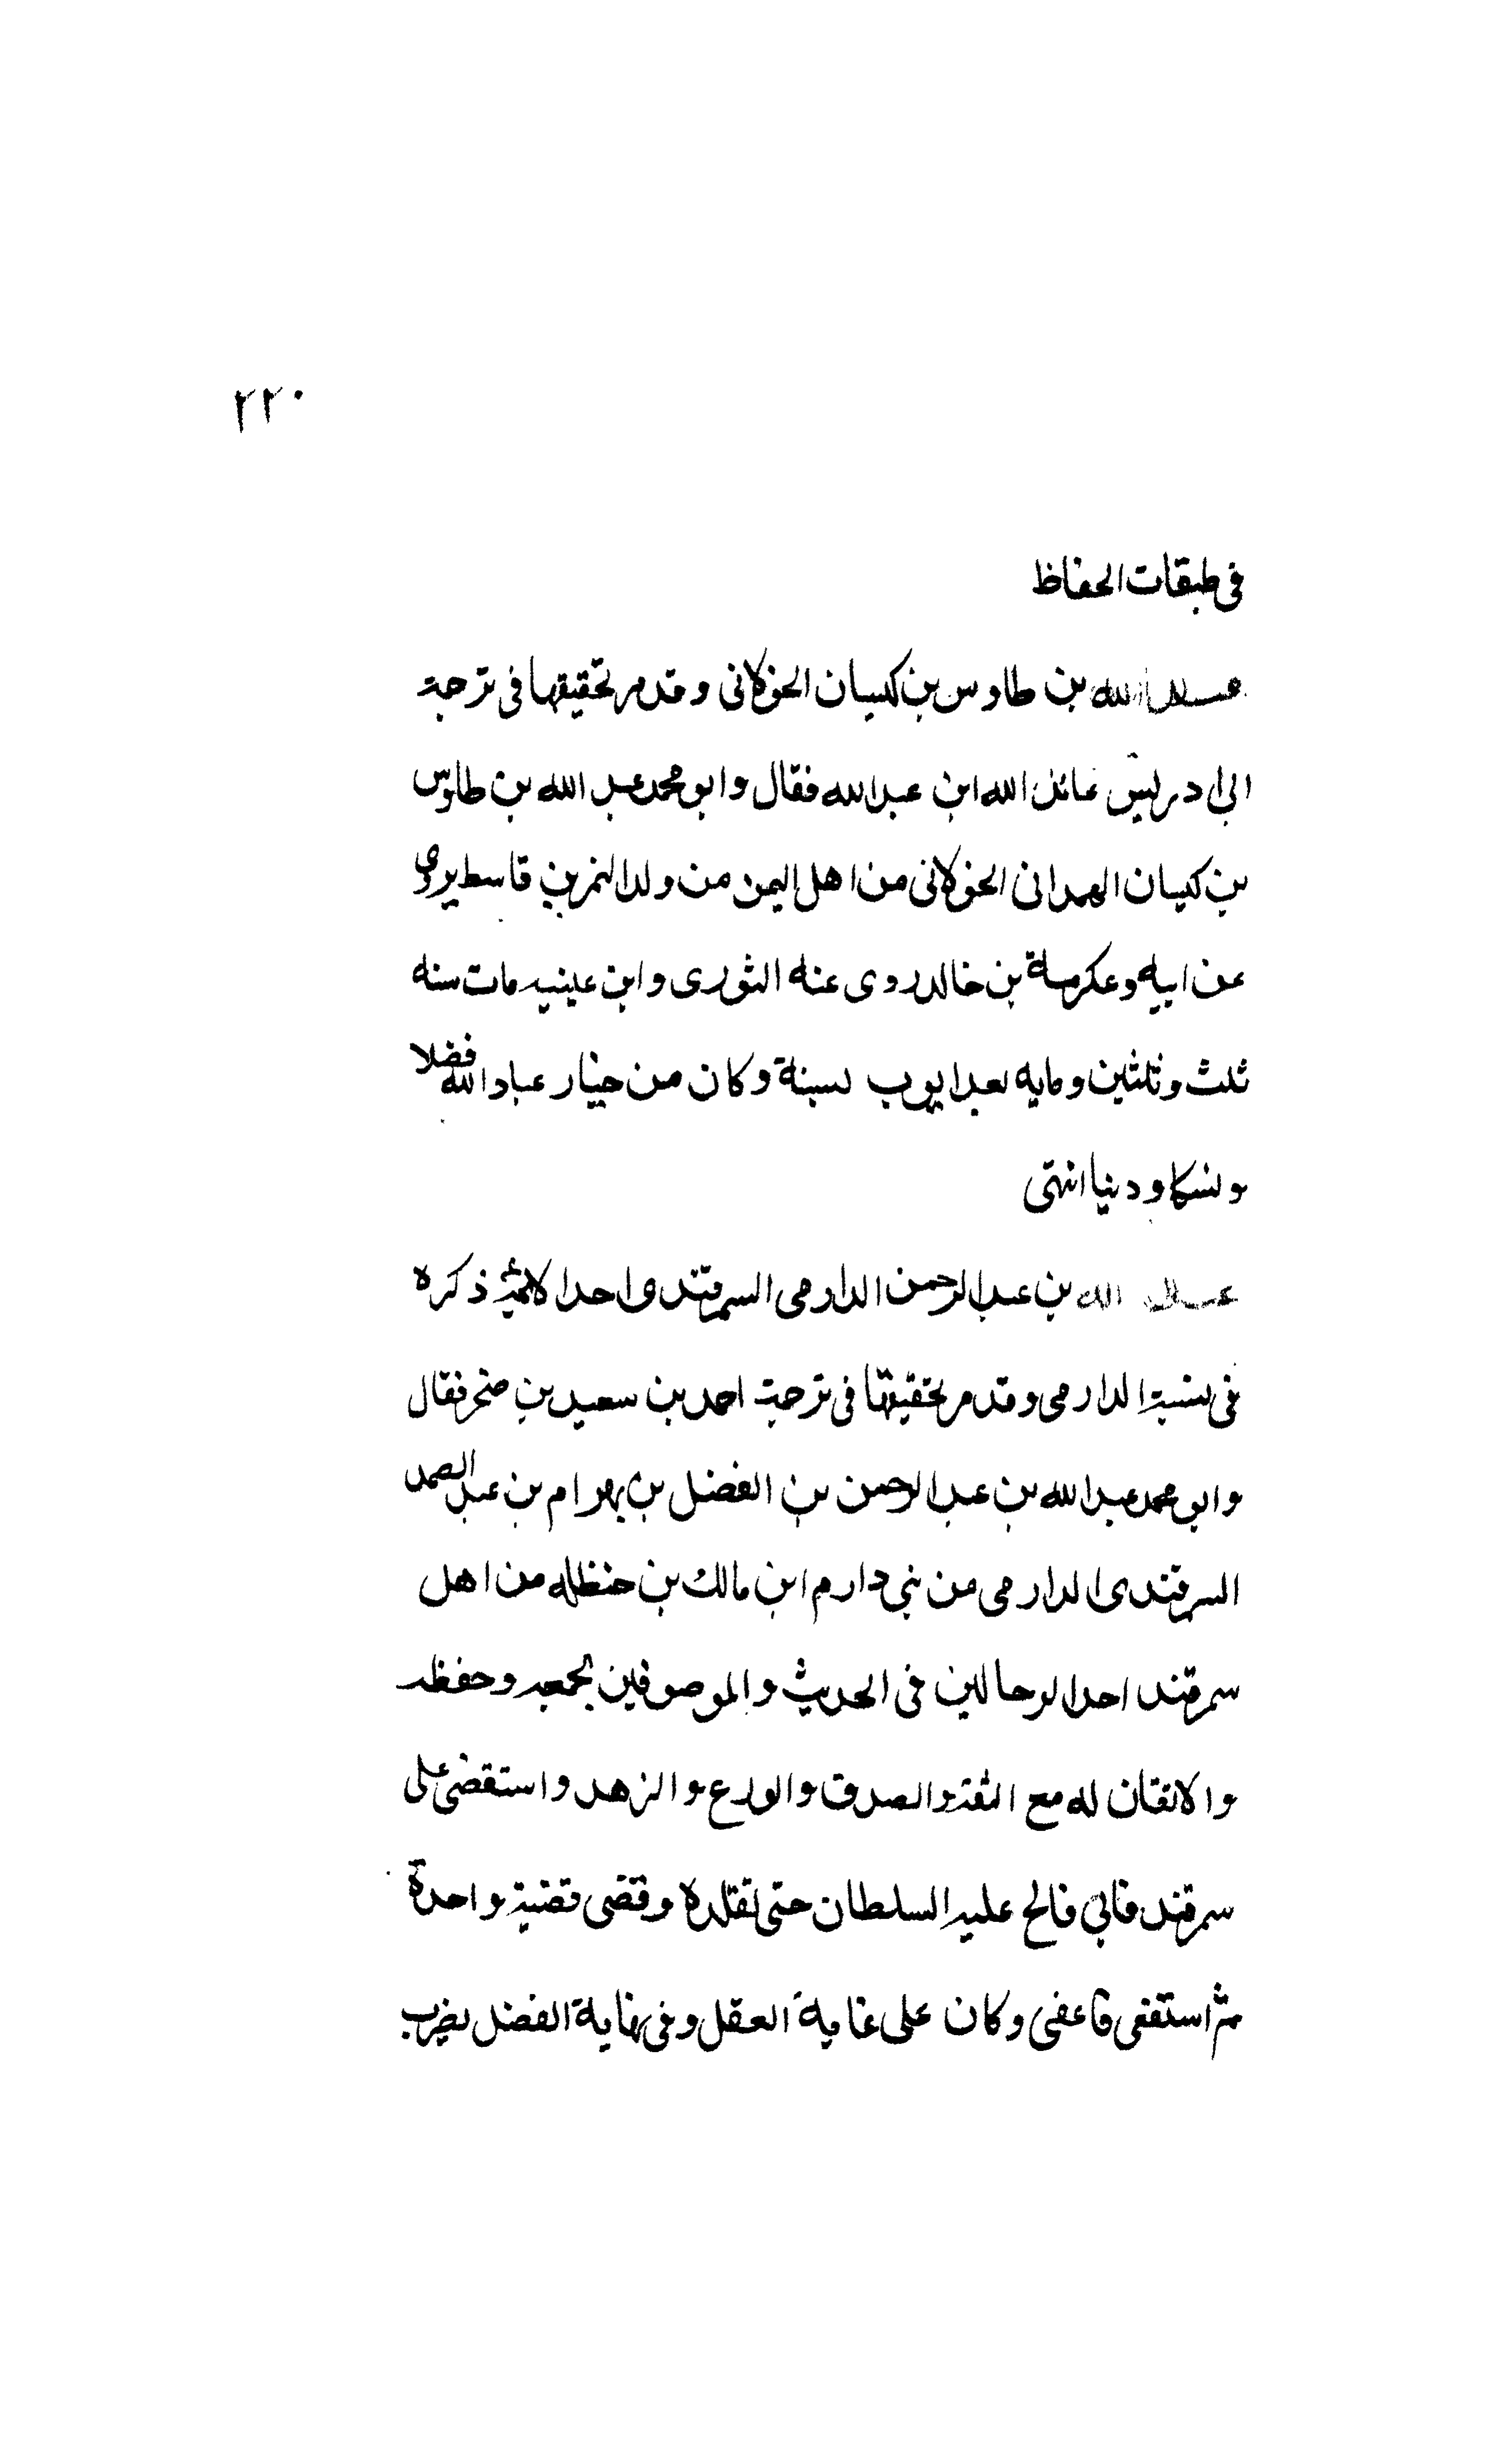 ٢٢٠
فى طبقات الحفاظ
عبد الله بن طاوس بن كيسان الخولانى وقدم تحقيقها فى ترجمة
ابى ادريس عائذ الله ابن عبد الله فقال وابو محمد عبد الله بن طاوس
بن كيسان الهمدانى الخولانى من اهل اليمن من ولد النمر بن قاسط يروى
عن ابيه وعكرمة بن خالد روى عنه الثورى وابن عيينه مات سنه
ثلث وثلثين ومايه بعد ايوب بسنة وكان من خيار عباد الله فضلا
ونسكا ودينا انتهى
عبد الله بن عبد الرحمن الدارمى السمرقندى احد الائمة ذكره
فى نسبة الدارمى وقدم تحقيقها فى ترجمة احمد بن سعيد بن صخر فقال
وابو محمد عبد الله بن عبد الرحمن بن الفضل بن بهرام بن عبد الصمد
السمرقندى الدارمى من بنى دارم ابن مالك بن حنظله من اهل
سمرقند احد الرحالين فى الحديث والموصوفين بجمعه وحفظه
والاتقان له مع الثقة والصدق والورع والزهد واستقضى على
سمرقند فابى فالح عليه السلطان حتى تقلده وقضى قضية واحدة
ثم استعفى فاعفى وكان على غاية العقل وفى نهاية الفضل يضرب